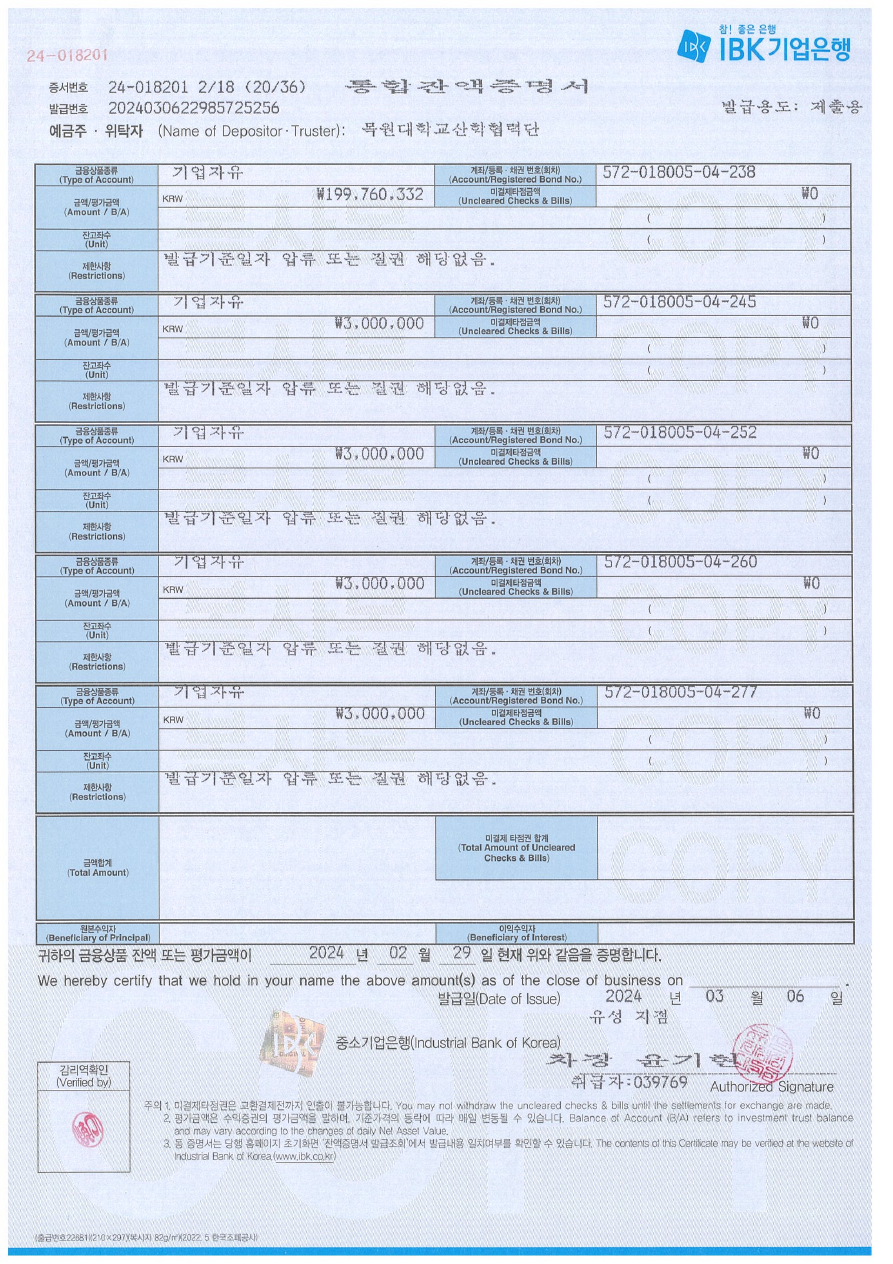 24-018201
참! 좋은 은행
IBK기업은행
증서번호 24-018201 2/18 (20/36) 통합잔액증명서
발급번호 2024030622985725256 발급용도: 제출용
예금주 · 위탁자 (Name of Depositor·Truster): 목원대학교산학협력단
금융상품종류 (Type of Account) 기업자유 계좌/등록 · 채권 번호(회차) (Account/Registered Bond No.) 572-018005-04-238
금액/평가금액 (Amount / B/A) KRW ₩199,760,332 미결제타점금액 (Uncleared Checks & Bills) ₩0
( )
잔고좌수 (Unit) ( )
제한사항 (Restrictions) 발급기준일자 압류 또는 질권 해당없음.
금융상품종류 (Type of Account) 기업자유 계좌/등록 · 채권 번호(회차) (Account/Registered Bond No.) 572-018005-04-245
금액/평가금액 (Amount / B/A) KRW ₩3,000,000 미결제타점금액 (Uncleared Checks & Bills) ₩0
( )
잔고좌수 (Unit) ( )
제한사항 (Restrictions) 발급기준일자 압류 또는 질권 해당없음.
금융상품종류 (Type of Account) 기업자유 계좌/등록 · 채권 번호(회차) (Account/Registered Bond No.) 572-018005-04-252
금액/평가금액 (Amount / B/A) KRW ₩3,000,000 미결제타점금액 (Uncleared Checks & Bills) ₩0
( )
잔고좌수 (Unit) ( )
제한사항 (Restrictions) 발급기준일자 압류 또는 질권 해당없음.
금융상품종류 (Type of Account) 기업자유 계좌/등록 · 채권 번호(회차) (Account/Registered Bond No.) 572-018005-04-260
금액/평가금액 (Amount / B/A) KRW ₩3,000,000 미결제타점금액 (Uncleared Checks & Bills) ₩0
( )
잔고좌수 (Unit) ( )
제한사항 (Restrictions) 발급기준일자 압류 또는 질권 해당없음.
금융상품종류 (Type of Account) 기업자유 계좌/등록 · 채권 번호(회차) (Account/Registered Bond No.) 572-018005-04-277
금액/평가금액 (Amount / B/A) KRW ₩3,000,000 미결제타점금액 (Uncleared Checks & Bills) ₩0
( )
잔고좌수 (Unit) ( )
제한사항 (Restrictions) 발급기준일자 압류 또는 질권 해당없음.
금액합계 (Total Amount) 미결제 타점권 합계 (Total Amount of Uncleared Checks & Bills)
COPY
원본수익자 (Beneficiary of Principal) 이익수익자 (Beneficiary of Interest)
귀하의 금융상품 잔액 또는 평가금액이 2024 년 02 월 29 일 현재 위와 같음을 증명합니다.
We hereby certify that we hold in your name the above amount(s) as of the close of business on .
발급일(Date of Issue) 2024 년 03 월 06 일
유성 지점
중소기업은행(Industrial Bank of Korea)
차장 윤기현
취급자:039769 Authorized Signature
감리역확인
(Verified by)
주의 1. 미결제타점권은 교환결제전까지 인출이 불가능합니다. You may not withdraw the uncleared checks & bills until the settlements for exchange are made.
2. 평가금액은 수익증권의 평가금액을 말하며, 기준가격의 등락에 따라 매일 변동될 수 있습니다. Balance of Account (B/A) refers to investment trust balance
and may vary according to the changes of daily Net Asset Value.
3. 동 증명서는 당행 홈페이지 초기화면 '잔액증명서 발급조회'에서 발급내용 일치여부를 확인할 수 있습니다. The contents of this Certificate may be verified at the website of
Industrial Bank of Korea.(www.ibk.co.kr)
(출급번호22681)(210×297)(복사지 82g/㎡)(2022. 5 한국조폐공사)